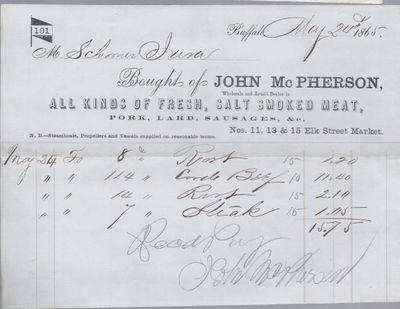 101
Buffalo, May 24th 1865.
M Schooner Iura
Bought of JOHN McPHERSON,
Wholesale and Retail Dealer in
ALL KINDS OF FRESH, SALT SMOKED MEAT,
PORK, LARD, SAUSAGES, &c.
N. B.—Steamboats, Propellers and Vessels supplied on reasonable terms.
Nos. 11, 13 & 15 Elk Street Market.
May 24 To 8 " Rost 15 1.20
" " 114 " Beef 10 11.40
" " 14 " Rost 15 2.10
" " 7 " Steak 15 1.05
15.75
Recd Pay
John McPherson